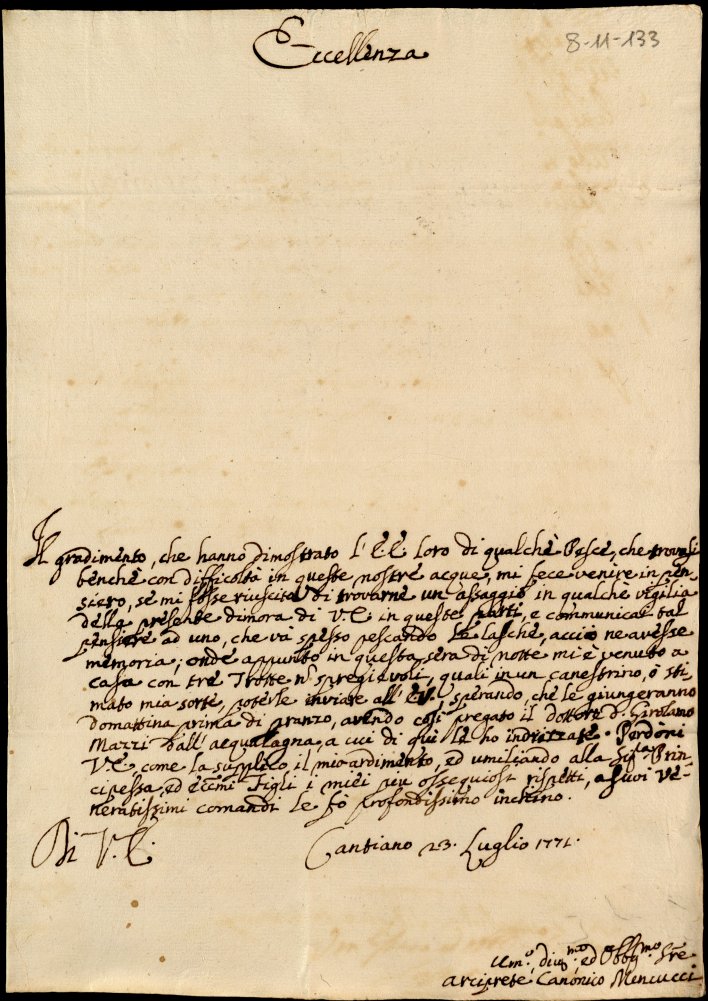 8-11-133
Eccellenza
Il gradimento, che hanno dimostrato l'E.E. loro di qualche Pesce, che trovasi
benche con difficoltà in queste nostre acque, mi fece venire in pen-
siero, se mi fosse riuscito di trovarne un assaggio in qualche vigilia
della presente dimora di V.E. in queste parti, e communicai tal
pensiere ad uno, che và spesso pescando le lasche, acciò ne avesse
memoria; onde appunto in questa sera di notte mi è venuto a
casa con trè Trotte nō spregievoli, quali in un canestrino, ò sti-
mato mia sorte, poterle inviare all'E.V. sperando, che le giungeranno
domattina prima di pranzo, avendo così pregato il dottore D. Girolamo
Marri dall'acqualagna, a cui di quì le hò indrizzate. Perdoni
V.E. come la supplico, il mio ardimento, ed umiliando alla Sig.ra Prin-
cipessa, ed eccmi Figli i miei più ossequiosi rispetti, a suoi ve-
neratissimi comandi le fò profondissimo inchino.
Di V.E.
Cantiano 23. Luglio 1771.
Umo. divmo. ed Obbmo. Sre
arciprete Canonico Mencucci